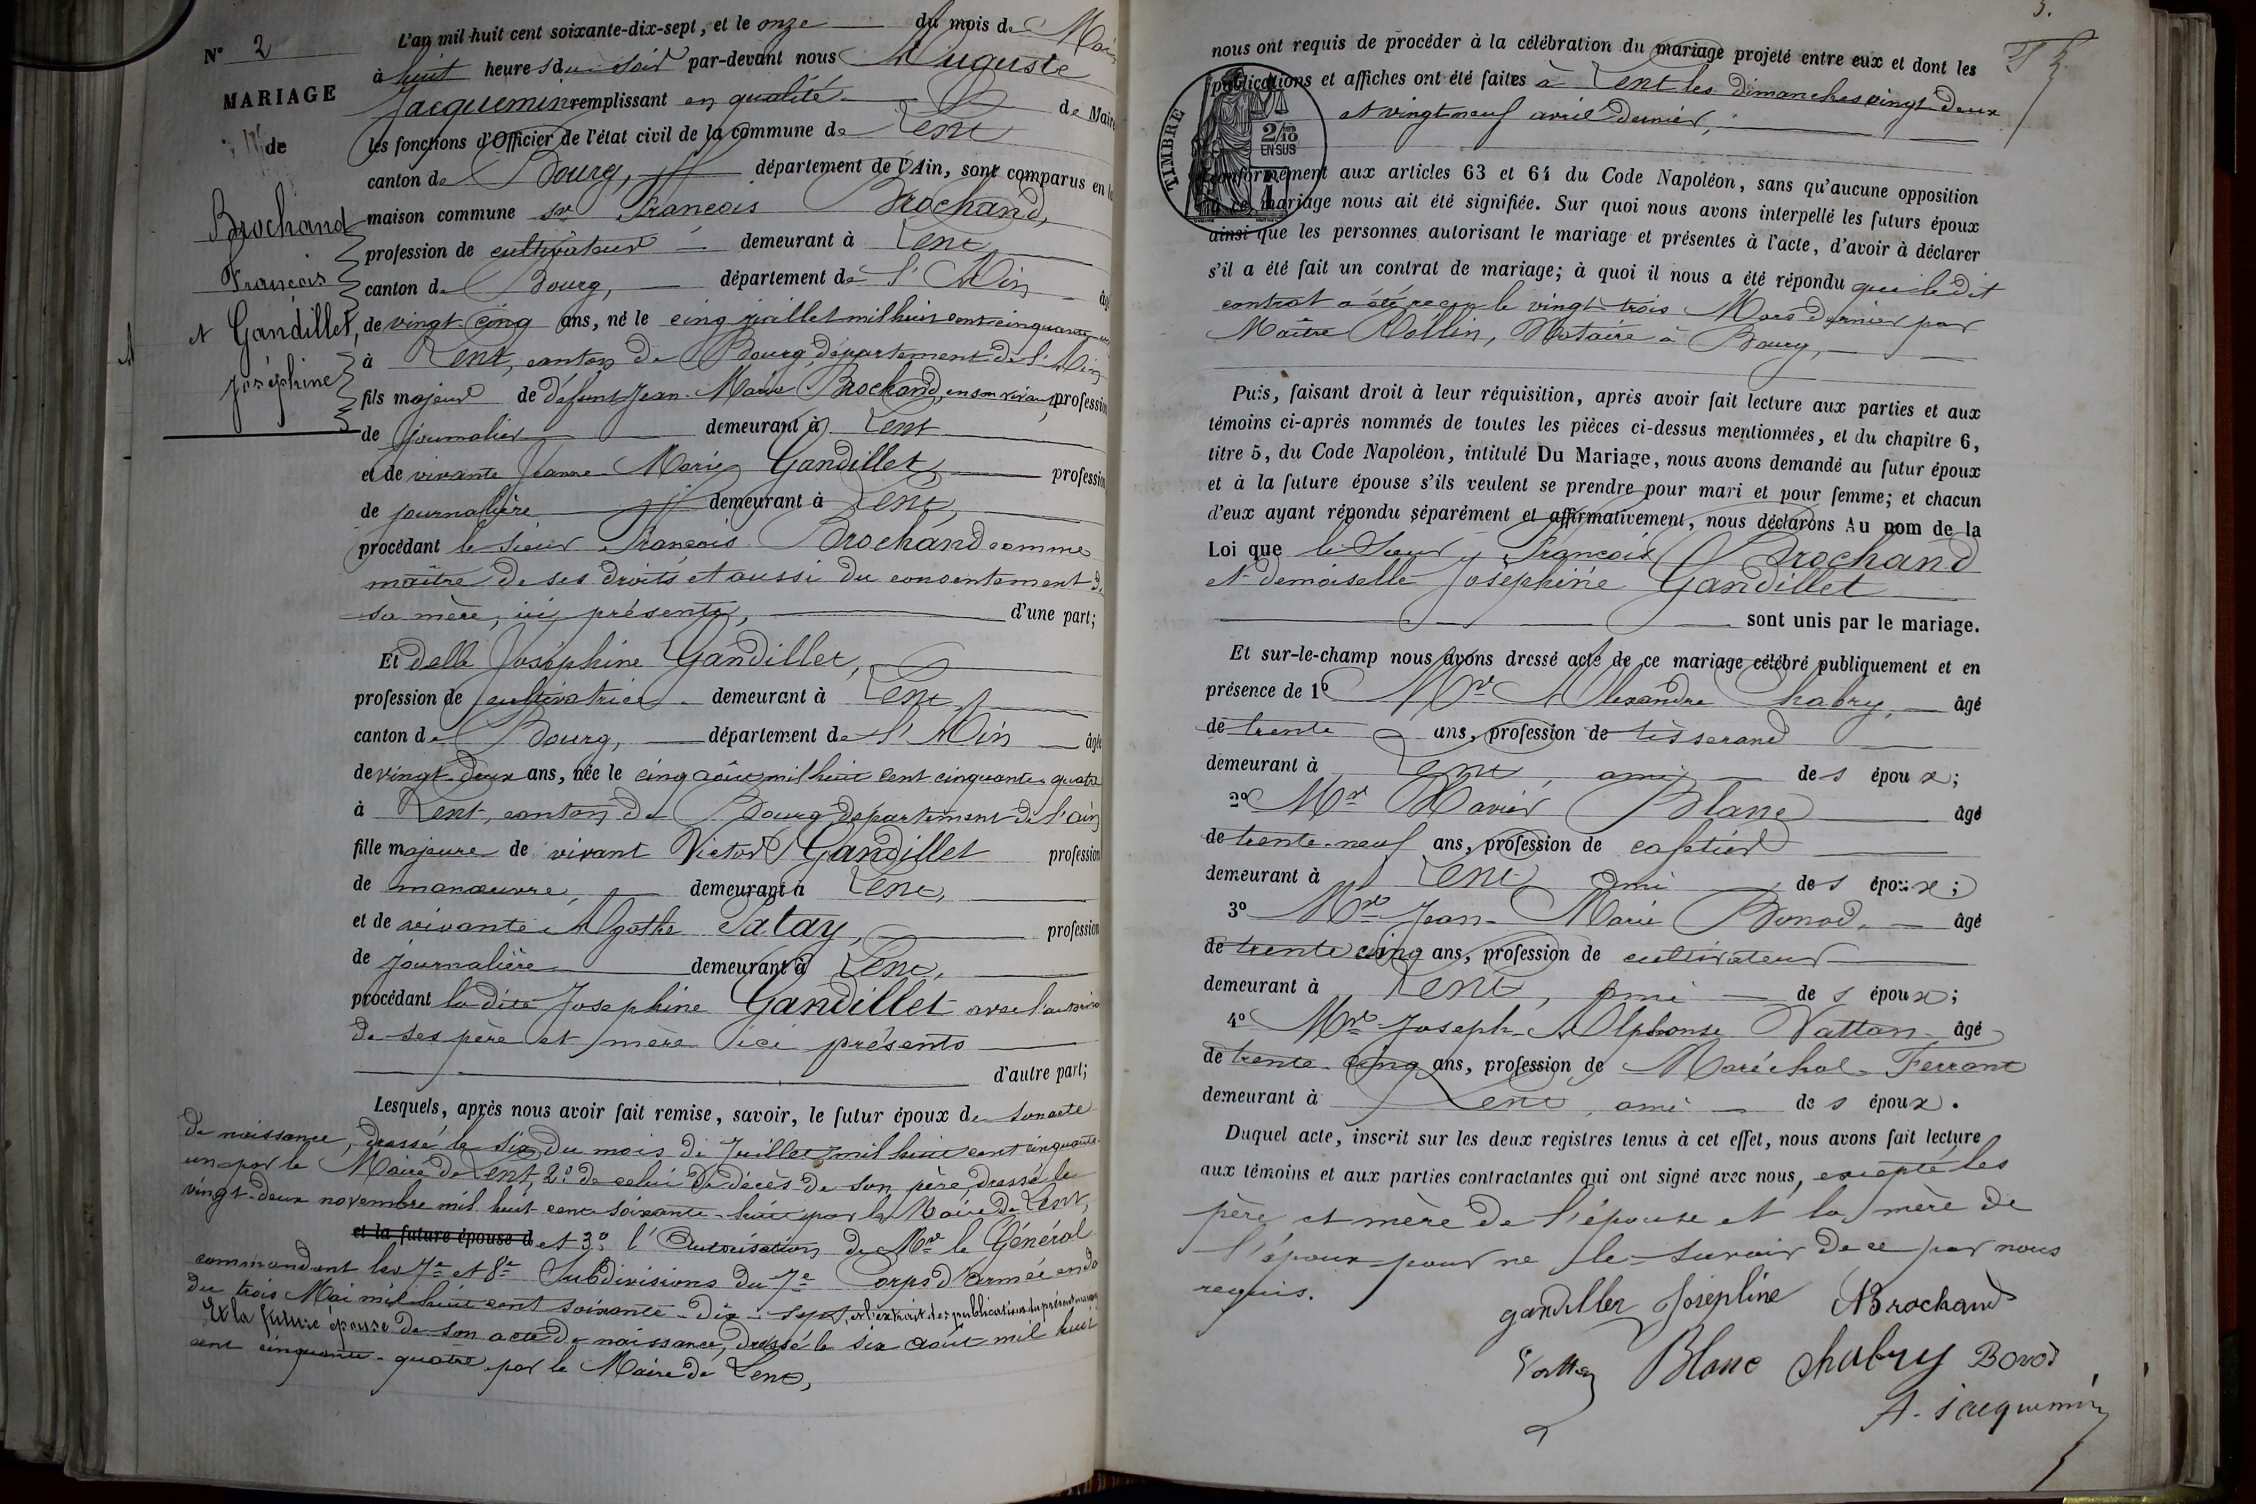 N° 2
MARIAGE
de
Brochand
François
et Gandillet,
Joséphine
L'an mil huit cent soixante-dix-sept, et le onze du mois de Mai
à huit heures du soir par-devant nous Auguste
Jacquemin remplissant en qualité de Maire
les fonctions d'Officier de l'état civil de la commune de Lent
canton de Bourg, département de l'Ain, sont comparus en la
maison commune sr François Brochand,
profession de cultivateur demeurant à Lent
canton de Bourg, département de l'Ain âgé
de vingt-cinq ans, né le cinq juillet mil huit cent cinquante-un
à Lent, canton de Bourg, département de l'Ain
fils majeur de défunt Jean-Marie Brochand, en son vivant, profession
de journalier demeurant à Lent
et de vivante Jeanne-Marie Gandillet, profession
de journalière demeurant à Lent,
procédant le sieur François Brochand comme
maître de ses droits et aussi du consentement de
sa mère, ici présente, d'une part;
Et delle Joséphine Gandillet,
profession de cultivatrice demeurant à Lent,
canton de Bourg, département de l'Ain âgée
de vingt-deux ans, née le cinq août mil huit cent cinquante-quatre
à Lent, canton de Bourg, département de l'ain
fille majeure de vivant Victor Gandillet profession
de manœuvre, demeurant à Lent,
et de vivante Agathe Salay, profession
de journalière demeurant à Lent,
procédant la dite Josephine Gandillet avec l'autorisa
de ses père et mère ici présents
d'autre part;
Lesquels, après nous avoir fait remise, savoir, le futur époux de son acte
de naissance, dressé le six du mois de Juillet mil huit cent cinquante-
un par le Maire de Lent, 2° de celui de décès de son père dressé le
vingt-deux novembre mil huit cent soixante-huit par le Maire de Lent,
et la future épouse d et 3° l'Autorisation de Mr le Général
commandant les 7e et 8e Subdivisions du 7e Corps d'armée en date
du trois Mai mil huit cent soixante-dix-sept, et l'extrait des publications du présent mariage
Et la future épouse de son acte de naissance, dressé le six août mil huit
cent cinquante-quatre par le Maire de Lent,
3.
nous ont requis de procéder à la célébration du mariage projeté entre eux et dont les
publications et affiches ont été faites à Lent les dimanches vingt-deux
et vingt-neuf avril dernier,
TIMBRE
2/10 EN SUS
conformément aux articles 63 et 64 du Code Napoléon, sans qu'aucune opposition
à ce mariage nous ait été signifiée. Sur quoi nous avons interpellé les futurs époux
ainsi que les personnes autorisant le mariage et présentes à l'acte, d'avoir à déclarer
s'il a été fait un contrat de mariage; à quoi il nous a été répondu que le dit
contrat a été reçu le vingt-trois Mars dernier par
Maître Rollin, Notaire à Bourg,
Puis, faisant droit à leur réquisition, après avoir fait lecture aux parties et aux
témoins ci-après nommés de toutes les pièces ci-dessus mentionnées, et du chapitre 6,
titre 5, du Code Napoléon, intitulé Du Mariage, nous avons demandé au futur époux
et à la future épouse s'ils veulent se prendre pour mari et pour femme; et chacun
d'eux ayant répondu séparément et affirmativement, nous déclarons Au nom de la
Loi que le Sieur François Brochand
et demoiselle Joséphine Gandillet
sont unis par le mariage.
Et sur-le-champ nous avons dressé acte de ce mariage célébré publiquement et en
présence de 1° Mr Alexandre Chabry, âgé
de trente ans, profession de tisserand
demeurant à Lent, ami des époux;
2° Mr Xavier Blanc âgé
de trente-neuf ans, profession de cafetier
demeurant à Lent ami des époux;
3° Mr Jean-Marie Bonod, âgé
de trente cinq ans, profession de cultivateur
demeurant à Lent, ami des époux;
4° Mr Joseph-Alphonse Vattan âgé
de trente-cinq ans, profession de Maréchal-Ferrant
demeurant à Lent, ami des époux.
Duquel acte, inscrit sur les deux registres tenus à cet effet, nous avons fait lecture
aux témoins et aux parties contractantes qui ont signé avec nous, excepté les
père et mère de l'épouse et la mère de
l'époux pour ne le savoir de ce par nous
requis.
gandillet Joséphine Brochand
Vattan Blanc Chabry Bonod
A. Jacquemin